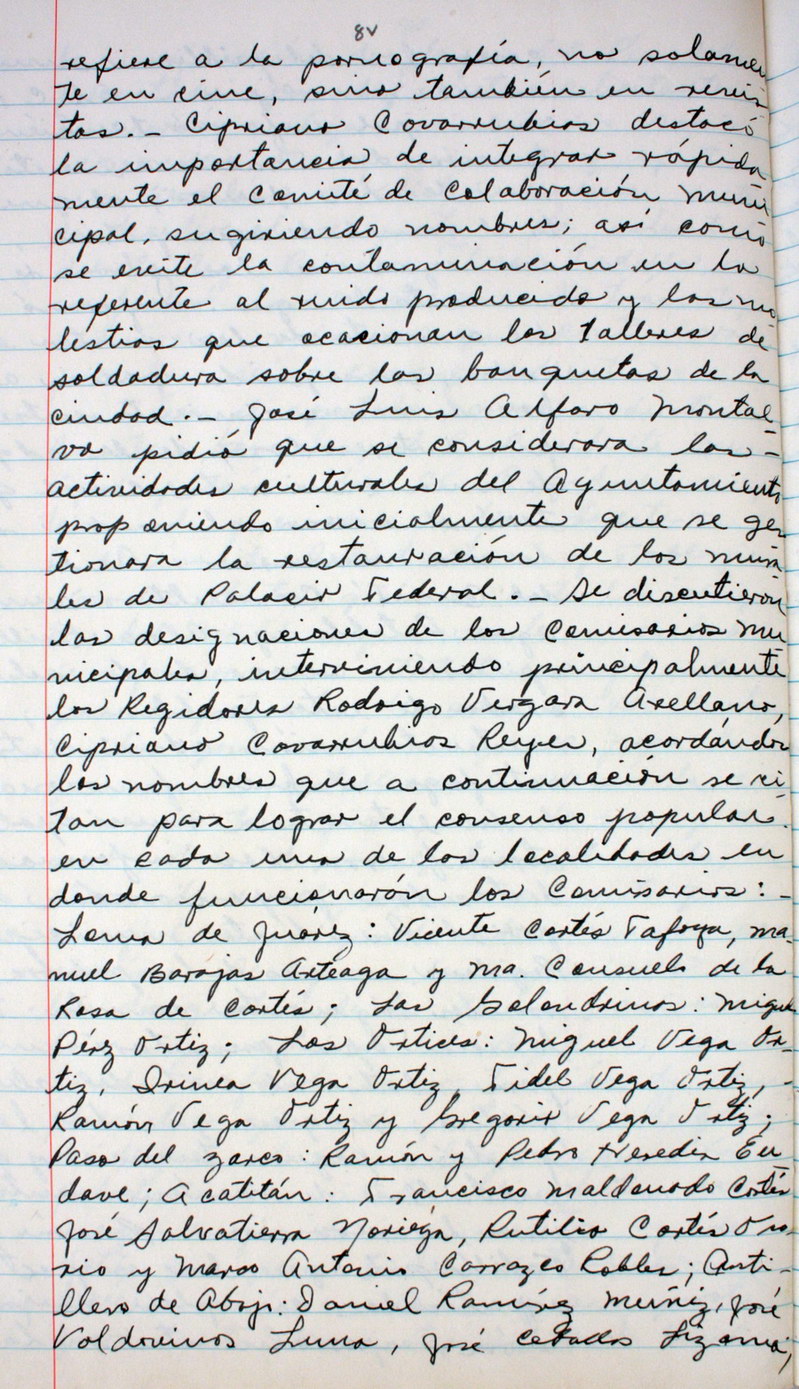 8v
refiere a la pornografía, no solamen
te en cine, sino también en revis
tas.- Cipriano Covarrubias destacó
la importancia de integrar rápida
mente el Comité de Colaboración Muni
cipal, sugiriendo nombres; así como
se evite la contaminación en lo
referente al ruido producido y las mo
lestias que ocacionan los Talleres de
soldadura sobre las banquetas de la
ciudad.- José Luis Alfaro Montal
vo pidió que se considerara las-
actividades culturales del Ayuntamiento
proponiendo inicialmente que se ges
tionara la restauración de los mura
les de Palacio Federal.- Se discutieron
las designaciones de los Comisarios Mu
nicipales, interviniendo principalmente
los Regidores Rodrigo Vergara Arellano,
Cipriano Covarrubias Reyes, acordándose
los nombres que a continuación se ci
tan para lograr el consenso popular.
en cada una de las localidades en
donde funcionarán los Comisarios:-
Loma de Juárez: Vicente Cortés Tafoya, Ma-
nuel Barajas Arteaga y Ma. Consuelo de la
Rosa de Cortés; Las Golondrinas: Miguel
Pérez Ortiz; Los Ortices: Miguel Vega Or-
tiz, Irinea Vega Ortiz, Fidel Vega Ortiz,-
Ramón Vega Ortiz y Gregorio Vega Ortiz;
Paso del Zarco: Ramón y Pedro Heredia En
dave; Acatitán: Francisco Maldonado Cortés
José Salvatierra Noriega, Rutilio Cortés Oso-
rio y Marco Antonio Carrazco Robles; Asti-
llero de Abajo: Daniel Ramírez Muñiz, José
Valdovinos Luna, José Ceballos Lizama,